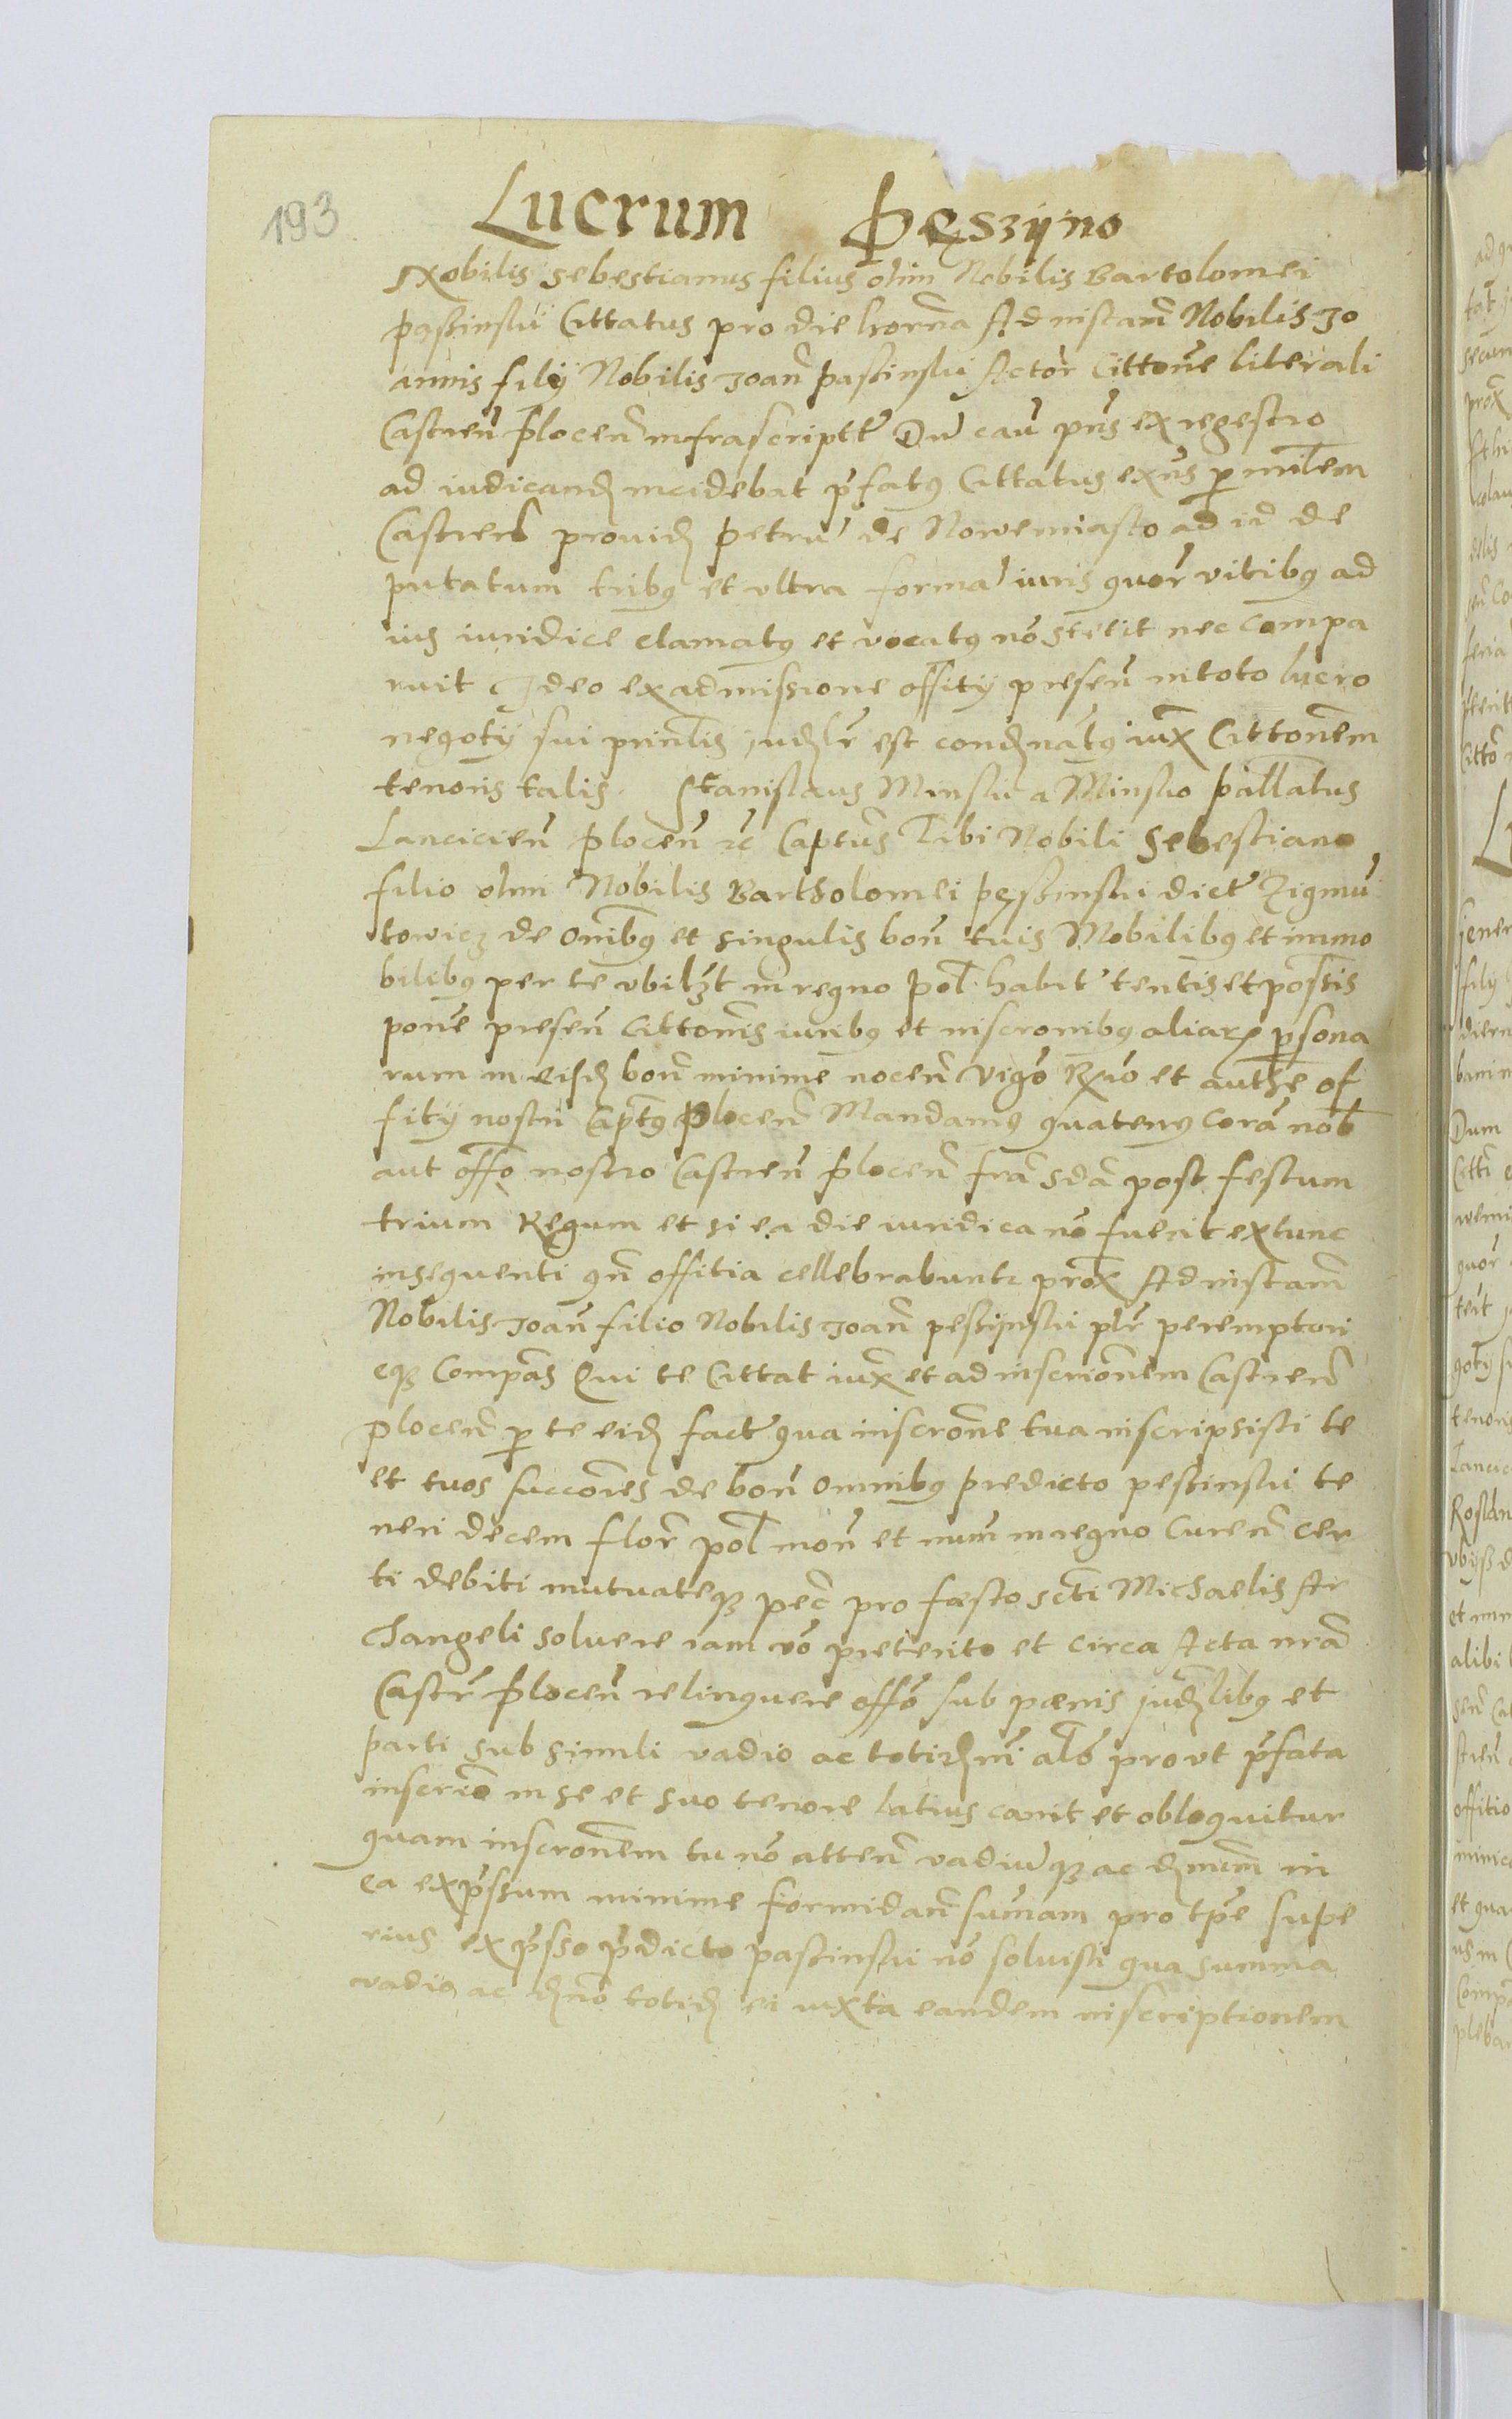 193
Lucrum Pęszyno
Nobilis Sebestianus filius olim Nobilis Bartolomei
paßinskii Cittatus pro die horna Ad instan Nobilis Jo
annis filij Nobilis Joan paßinskii Actor Cittone literali
Castren Plocen infrascriptt Du cau pns ex regestro
ad iudicand incidebat pfatus Cittatus exns p nultem
Castren prouid petru de Nowemiasto ad id de
putatum tribus et vltra forma iuris quor vitibus ad
ius iuridice clamatus et vocatus no stetit nec compa
ruit Ideo ex admissione offitij presen in toto lucro
negotij sui princlis judlr est condnatus iux Cittonem
tenoris talis. Stanislaus Minskii a Minsko pallatus
Lancicien Plocen etc Captus Tibi Nobili Sebestiano
filio olim Nobilis Bartholomei pęßinskii dict Zigmu
towicz de Onibus et singulis bon tuis Mobilibus et immo
bilibus per te vbilzt in regno pol habit tentis et possis
pone presen Cittonis iuribus et inscronibus aliarum psona
rum in eisd bon minime nocen Vigo Rno et authe of
fitij nostri Captus Plocen Mandamus quatenus Cora nob
aut offo nostro Castren Plocen fra sda post festum
trium Regum et si ea die iuridica no fuerit extunc
insequenti qn offitia cellebrabuntr prox Ad instam
Nobilis Joan filio Nobilis Joan peßinskii plr peremptori
eque Compas Qui te Cittat iux et ad inscrionem Castren
Plocen p te eid fact qua inscrone tua inscripsisti te
et tuos succores de bon omnibus predicto peßinskii te
neri decem flor pol mon et num in regno Curen cer
ti debiti mutuateque pec pro foesto scti Michaelis Ar
changeli soluere iam vo preterito et circa Acta nra
Castr Plocen relinquere offo sub poenis judlibus et
parti sub simili vadio ac totidmi also prout pfata
inscrio in se et suo tenore latius canit et obloquitur
quam inscronem tu no atten vadiuque ac dmnum in
ea expssum minime formidan sumam pro tpe supe
rius expsso pdicto paßinskii no soluisti qua summa
vadio ac dno totid ei iuxta eandem inscriptionem